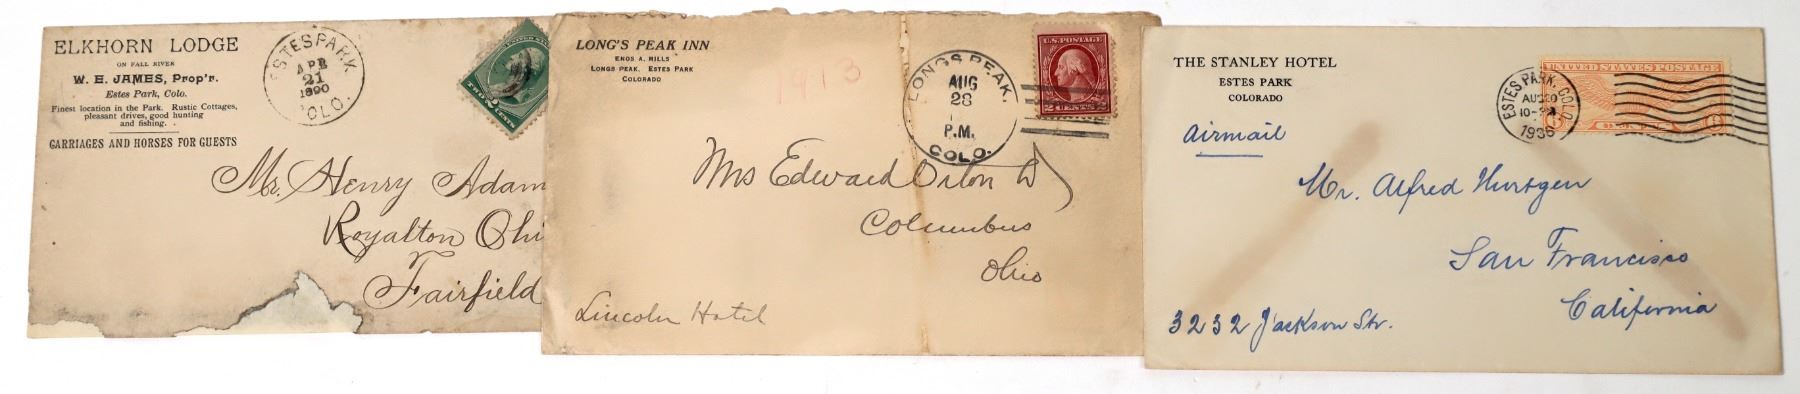 ELKHORN LODGE
ON FALL RIVER
W. E. JAMES, Prop'r.
Estes Park, Colo.
Finest location in the Park. Rustic Cottages,
pleasant drives, good hunting
and fishing.
CARRIAGES AND HORSES FOR GUESTS
ESTES PARK
APR
21
1890
COLO.
TWO CENTS
Mr. Henry Adam
Royalton Ohi
Fairfield
LONG'S PEAK INN
ENOS A. MILLS
LONGS PEAK. ESTES PARK
COLORADO
1913
LONGS PEAK.
AUG
28
P.M.
COLO.
U.S. POSTAGE
2 CENTS 2
Mrs Edward Orton
Columbus
Ohio
Lincoln Hotel
THE STANLEY HOTEL
ESTES PARK
COLORADO
Airmail
ESTES PARK, COLO.
1936
UNITED STATES POSTAGE
6 6
Mr. Alfred Hurtgen
San Francisco
California
3232 Jackson Str.